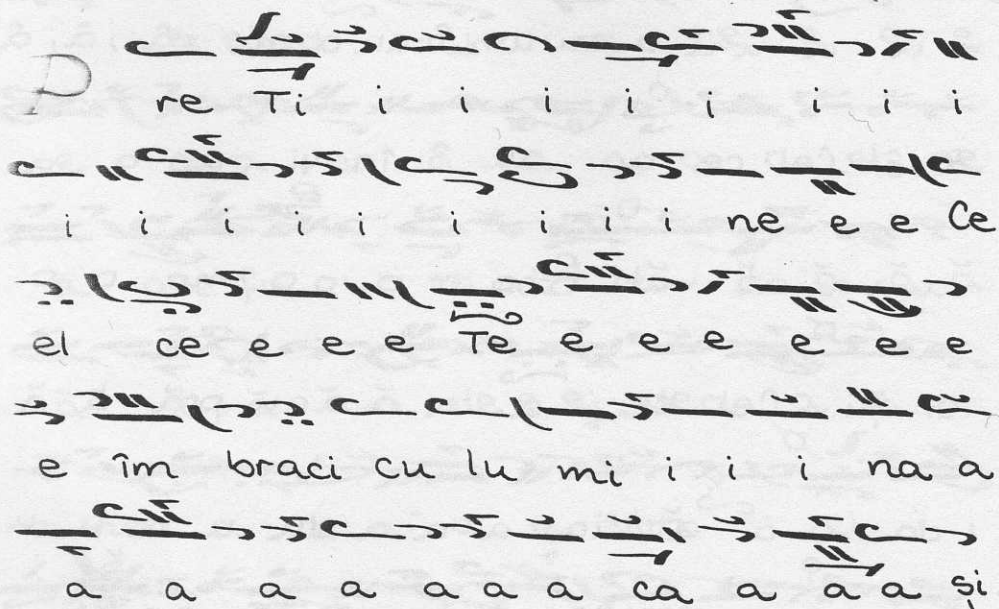 P re Ti i i i i i i i i
i i i i i i i i i ne e e Ce
el ce e e e Te e e e e e e
e îm braci cu lu mi i i i na a
a a a a a a a ca a a a și